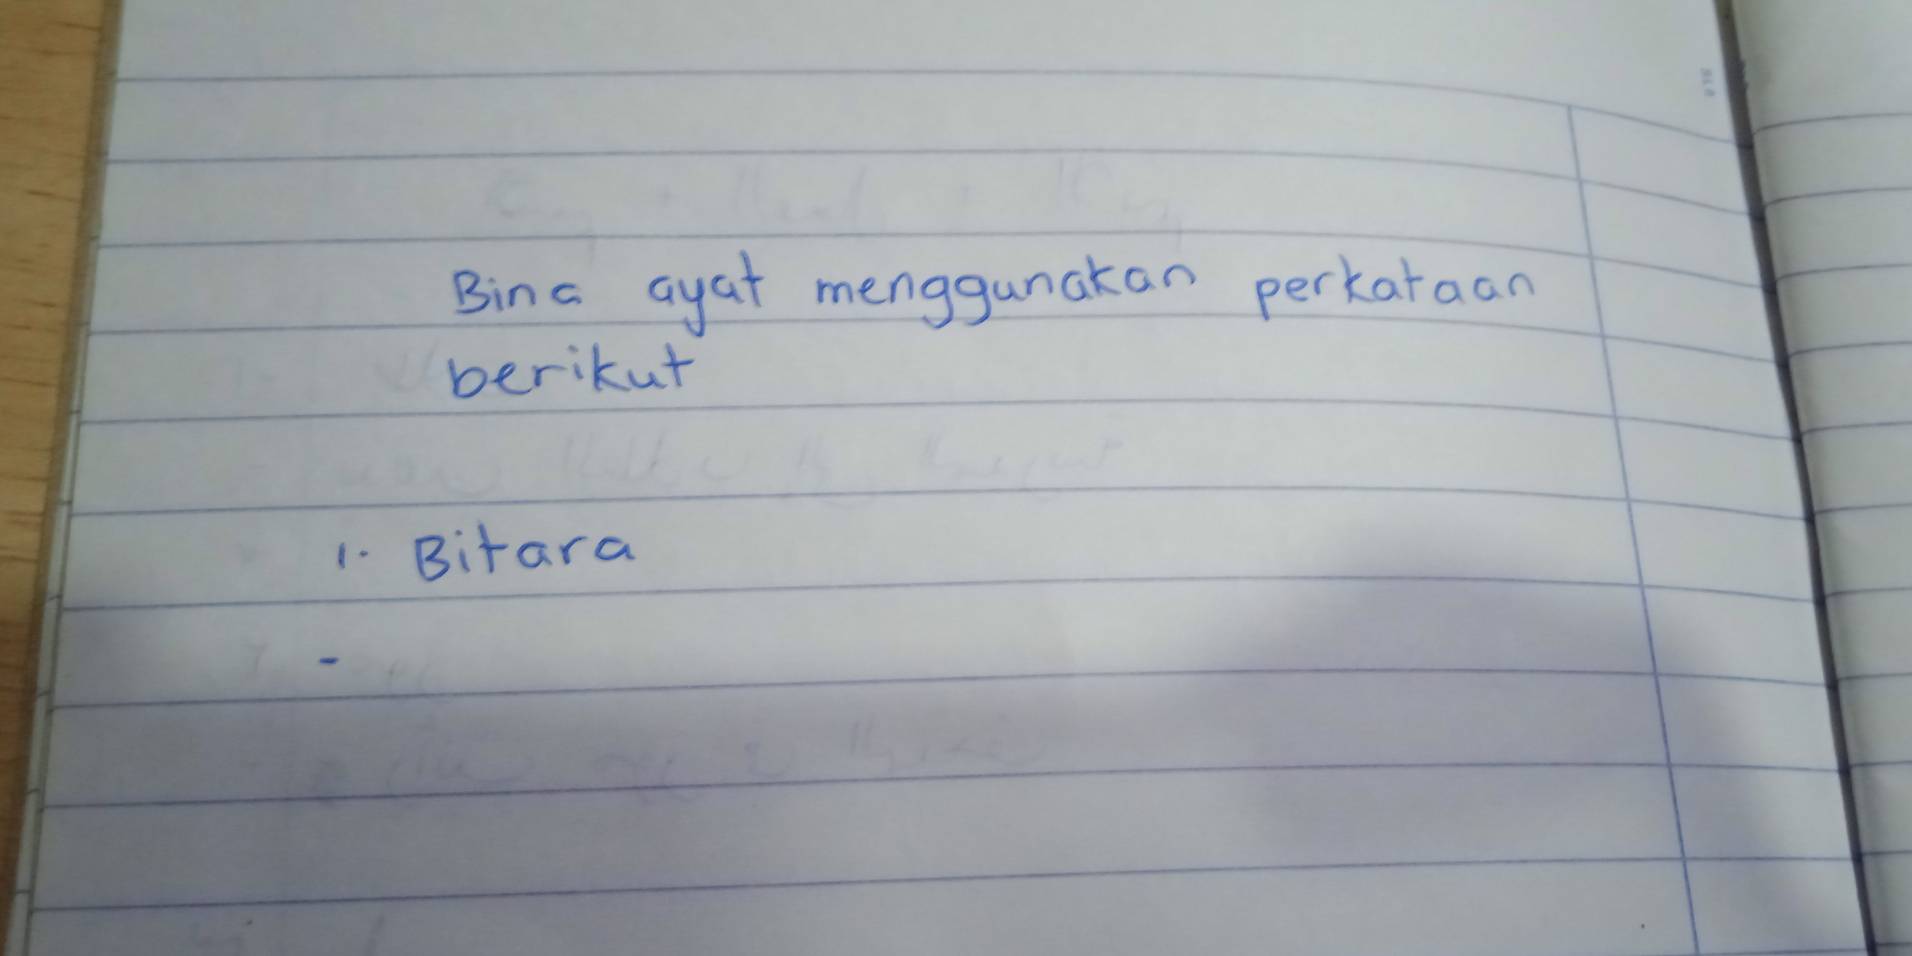 Bina ayat menggunakan perkataan
berikut
1. Bitara
-